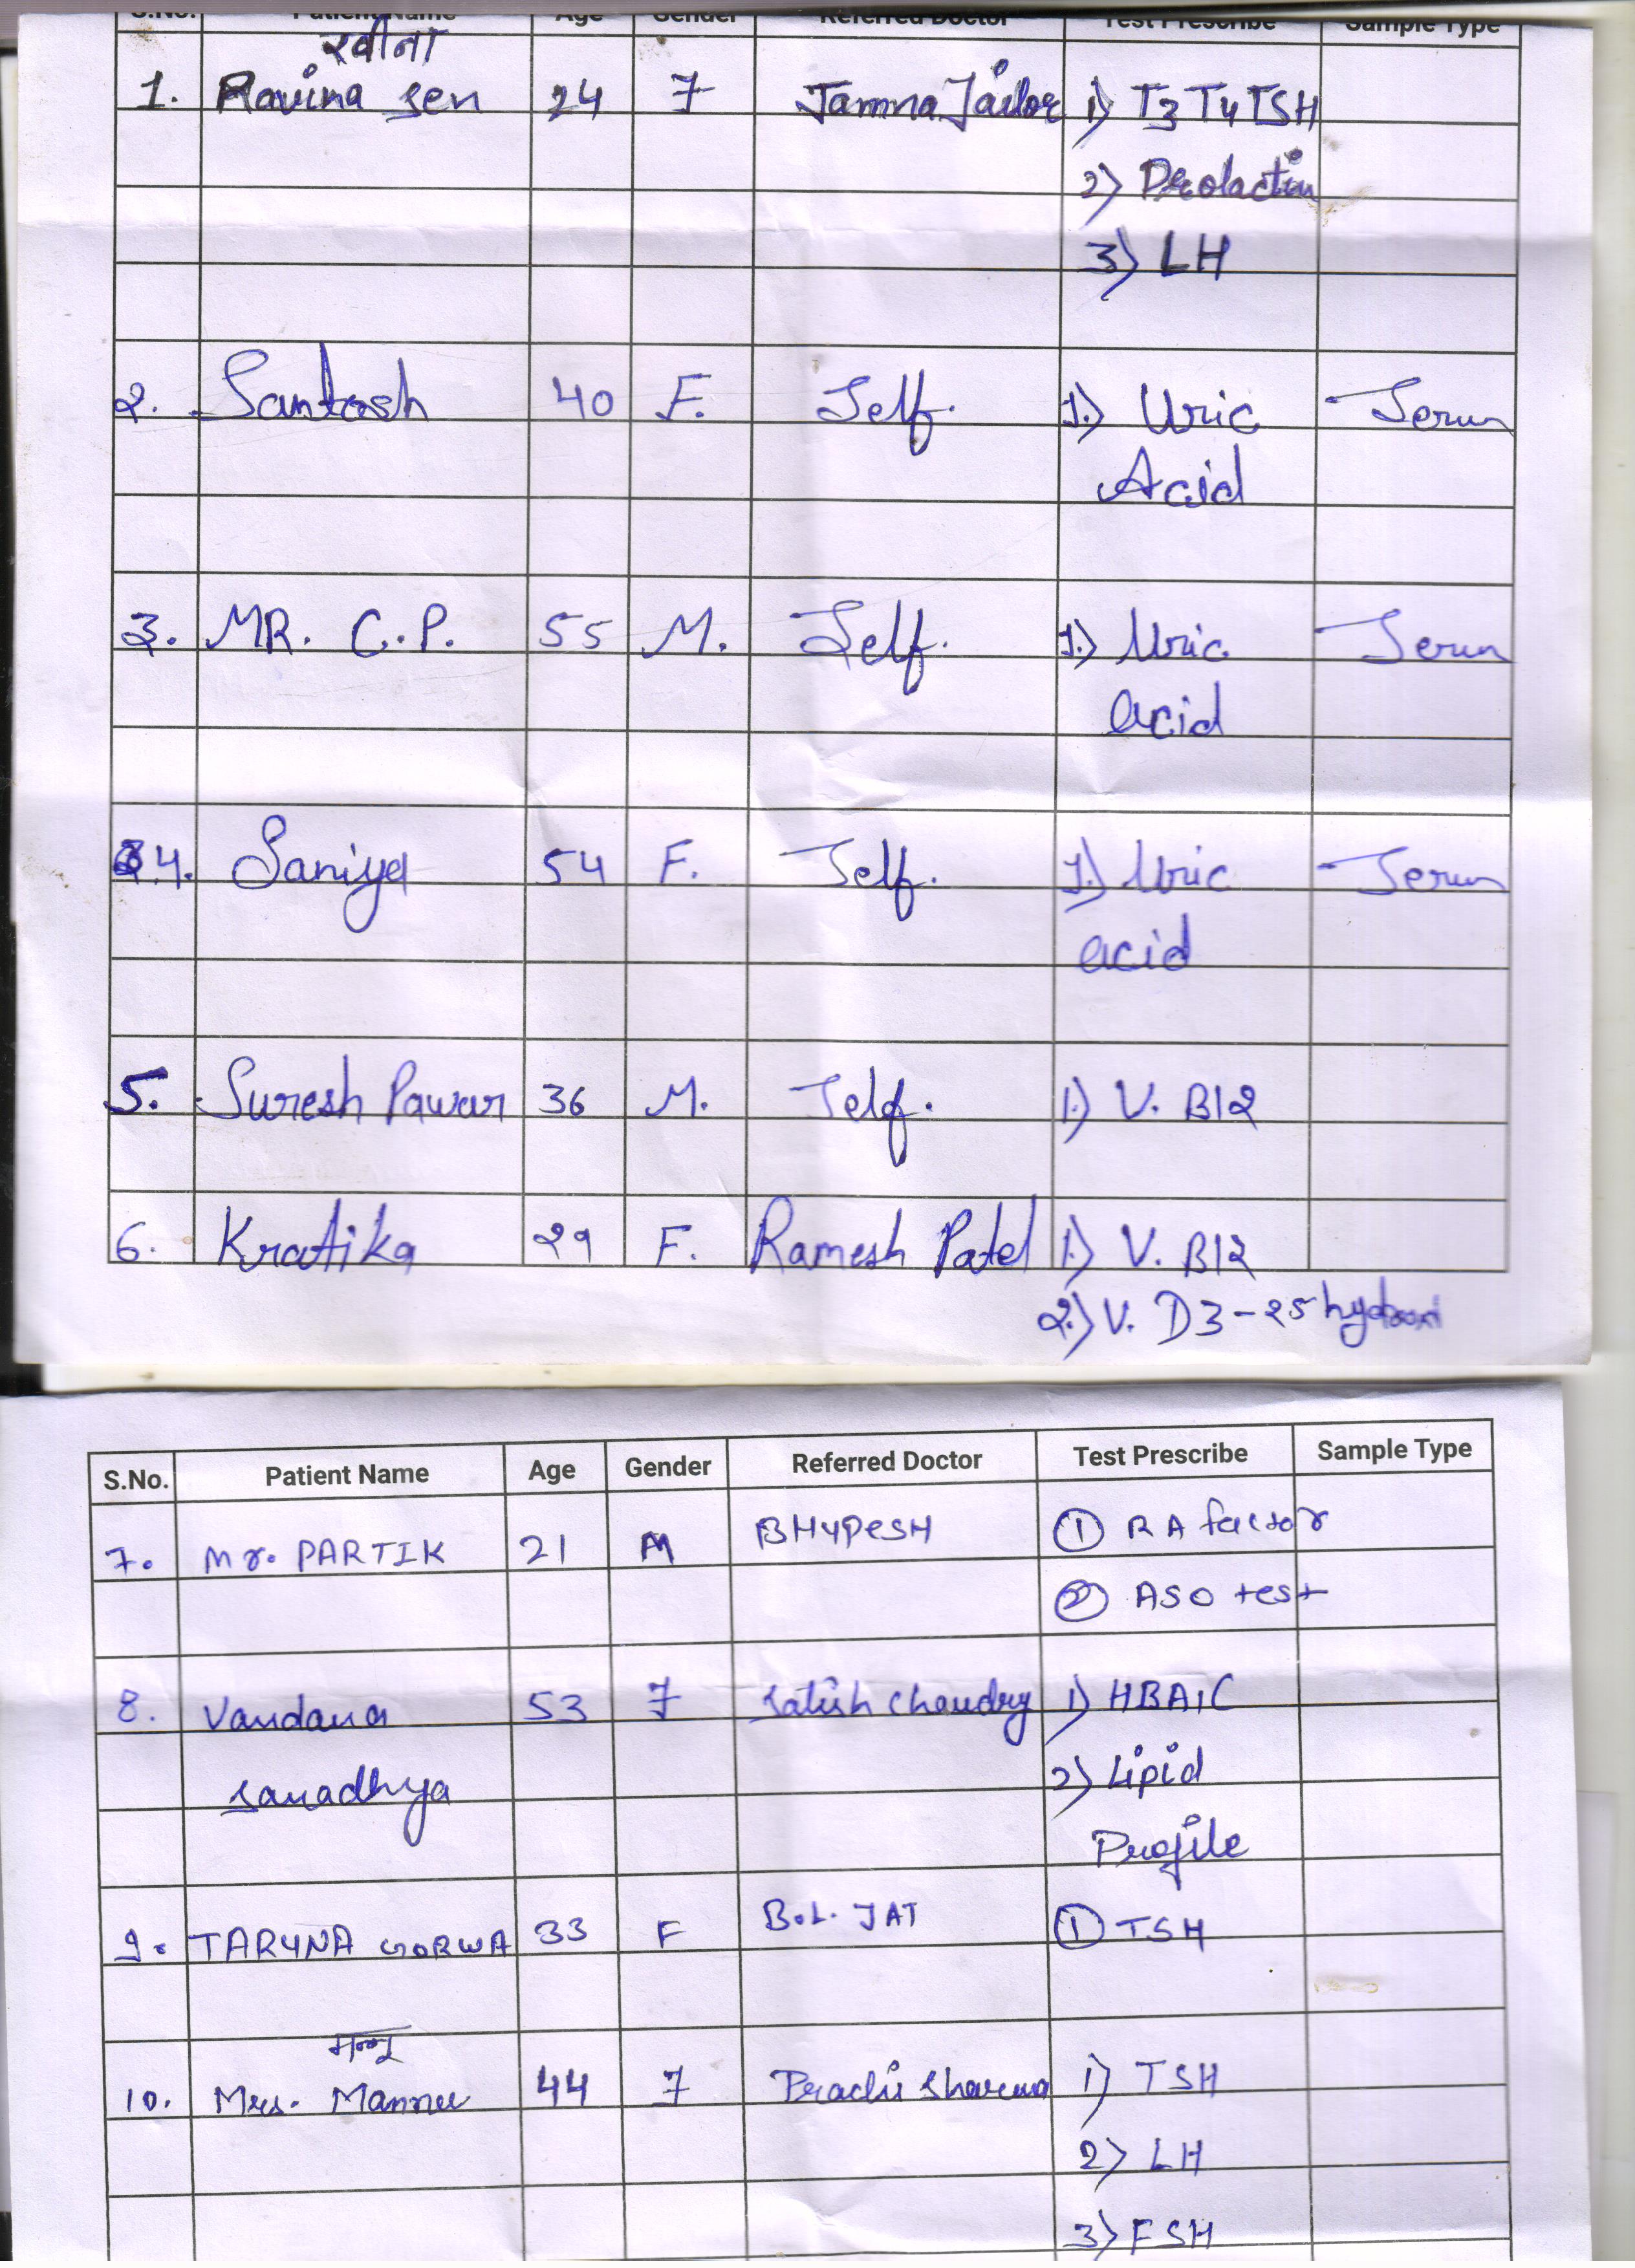 S.No. Patient Name Age Gender Referred Doctor Test Prescribe Sample Type
रवीना
1. Ravina Sen 24 F Jamna Jailor 1) T3 T4 TSH
2) Prolactin
3) LH
2. Santosh 40 F. Self. 1.) Uric - Serum
Acid
3. MR. C.P. 55 M. Self. 1.) Uric - Serum
acid
4. Saniya 54 F. Self. 1.) Uric - Serum
acid
5. Suresh Pawar 36 M. Self. 1.) V. B12
6. Kratika 29 F. Ramesh Patel 1.) V. B12
2.) V. D3-25 hydroxi
S.No. Patient Name Age Gender Referred Doctor Test Prescribe Sample Type
7. Mr. PARTIK 21 M BHUPESH ① RA factor
② ASO test
8. Vandana 53 F Satish Choudry 1) HBA1C
Sanadhya 2) Lipid
Profile
9. TARUNA GORWA 33 F B.L. JAT ① TSH
मन्नू
10. Mrs. Mannu 44 F Prachi Sharma 1) TSH
2) LH
3) FSH